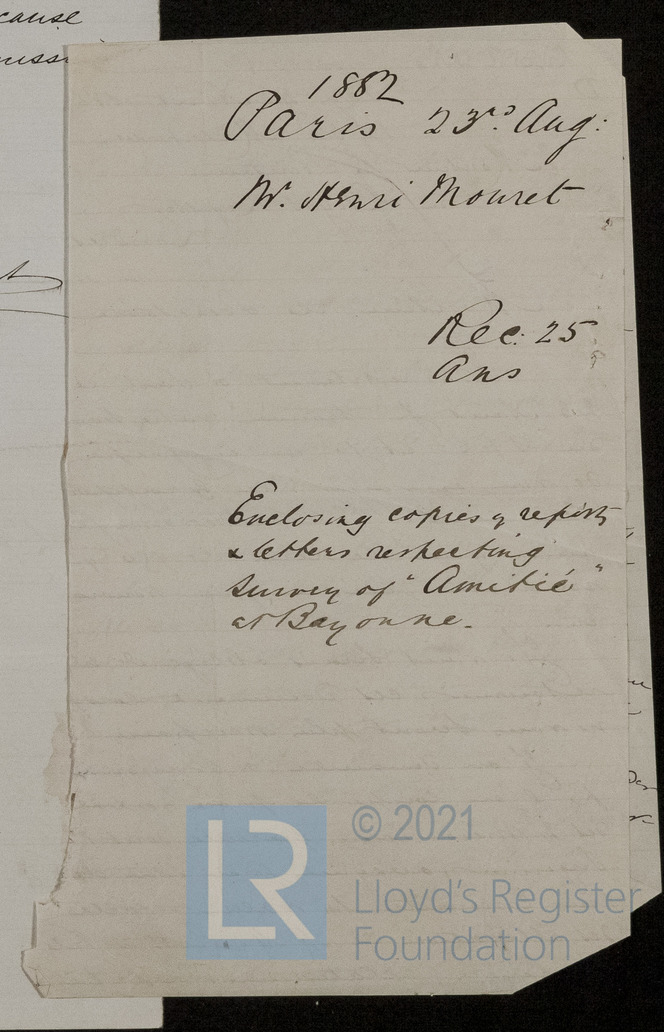 cause
1882
Paris 23rd. Aug:
Mr. Henri Mouret
Rec: 25
Ans
Enclosing copies of reports
& letters respecting
survey of "Amitié"
at Bayonne.
LR
© 2021
Lloyd's Register
Foundation